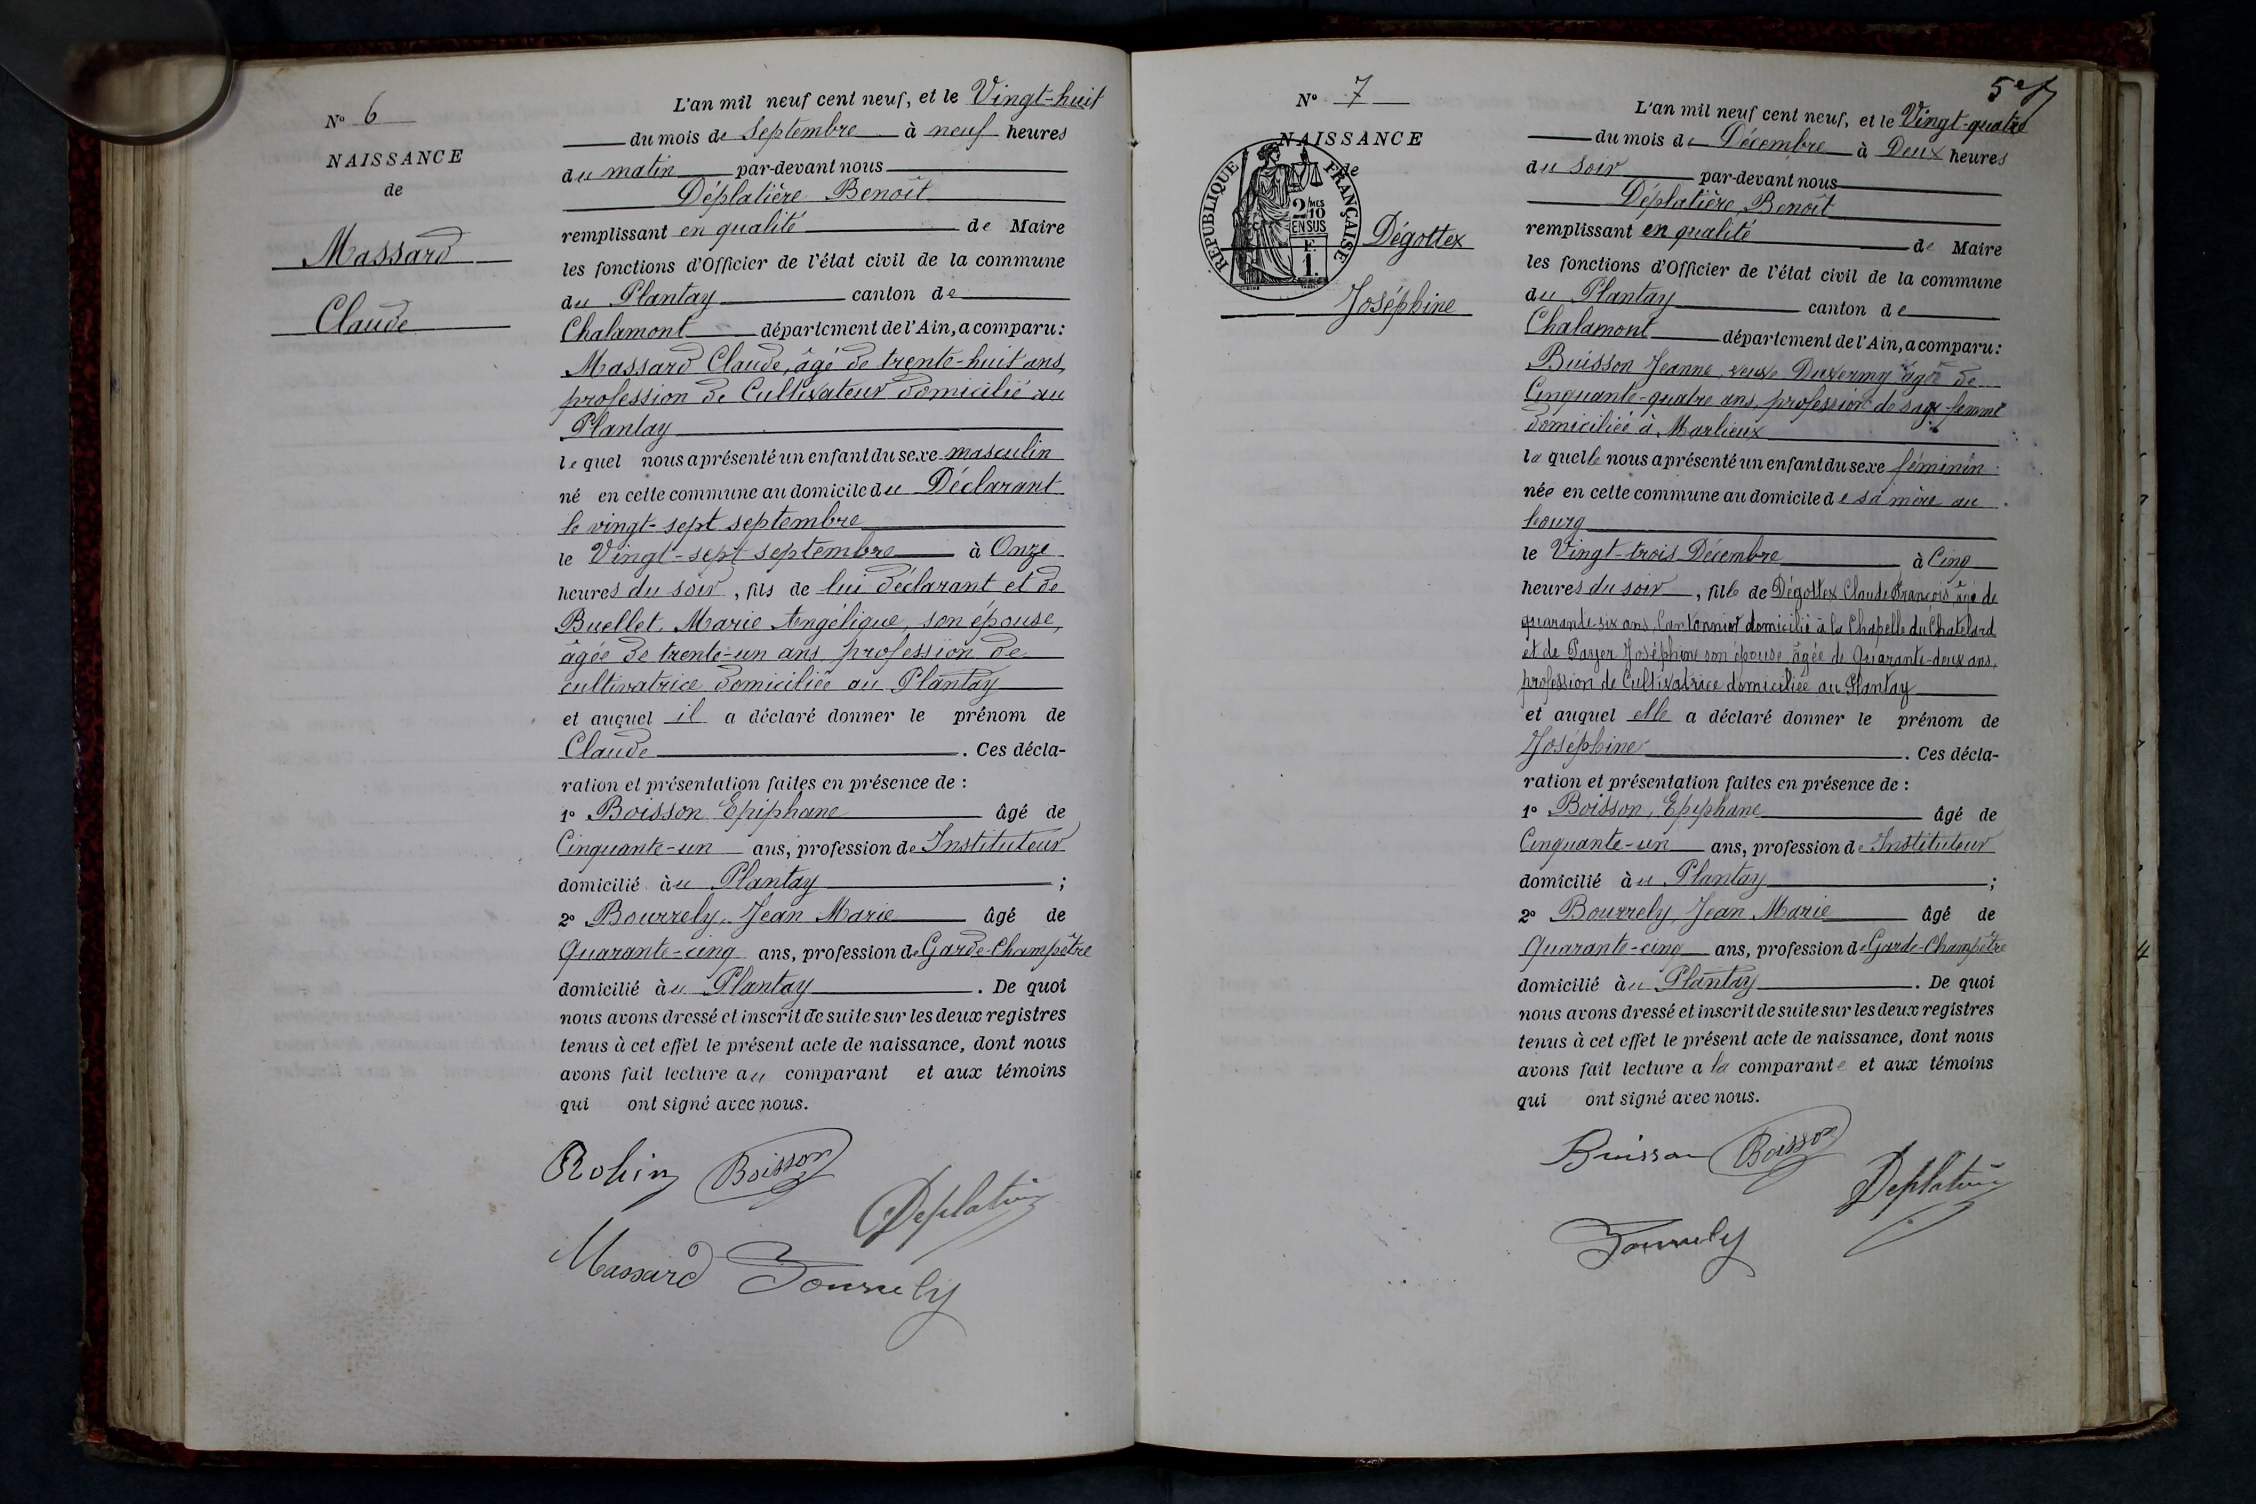 Nº 6
NAISSANCE
de
Massard
Claude
L'an mil neuf cent neuf, et le Vingt-huit
du mois de Septembre à neuf heures
du matin par-devant nous
Déplatière Benoît
remplissant en qualité de Maire
les fonctions d'Officier de l'état civil de la commune
du Plantay canton de
Chalamont département de l'Ain, a comparu :
Massard Claude, âgé de trente-huit ans,
profession de Cultivateur domicilié au
Plantay
lequel nous a présenté un enfant du sexe masculin
né en cette commune au domicile du Déclarant
le vingt-sept septembre
le Vingt-sept septembre à Onze
heures du soir, fils de lui déclarant et de
Buellet, Marie Angélique, son épouse,
âgée de trente-un ans profession de
cultivatrice domiciliée au Plantay
et auquel il a déclaré donner le prénom de
Claude. Ces décla-
ration et présentation faites en présence de :
1º Boisson Epiphane âgé de
Cinquante-un ans, profession de Instituteur
domicilié àu Plantay ;
2º Bourrely, Jean Marie âgé de
Quarante-cinq ans, profession de Garde-Champêtre
domicilié àu Plantay. De quoi
nous avons dressé et inscrit de suite sur les deux registres
tenus à cet effet le présent acte de naissance, dont nous
avons fait lecture au comparant et aux témoins
qui ont signé avec nous.
Robin Boisson
Deplatière
Massard Bourrely
5e
Nº 7
NAISSANCE
de
RÉPUBLIQUE FRANÇAISE
2/10 MES
EN SUS
F.
1.
Dégottex
Joséphine
L'an mil neuf cent neuf, et le Vingt-quatre
du mois de Décembre à Deux heures
du soir par-devant nous
Déplatière, Benoît
remplissant en qualité de Maire
les fonctions d'Officier de l'état civil de la commune
du Plantay canton de
Chalamont département de l'Ain, a comparu :
Buisson Jeanne, veuve Duvermy âgée de
Cinquante-quatre ans, profession de sage-femme
domiciliée à Marlieux
laquelle nous a présenté un enfant du sexe féminin
née en cette commune au domicile de sa mère au
bourg
le Vingt-trois Décembre à Cinq
heures du soir, fille de Dégottex Claude François âgé de
quarante-six ans, Cantonnier domicilié à la Chapelle du Chatelard
et de Payer Joséphine son épouse âgée de Quarante-deux ans,
profession de Cultivatrice domiciliée au Plantay
et auquel elle a déclaré donner le prénom de
Joséphine. Ces décla-
ration et présentation faites en présence de :
1º Boisson, Epiphane âgé de
Cinquante-un ans, profession de Instituteur
domicilié àu Plantay ;
2º Bourrely, Jean Marie âgé de
Quarante-cinq ans, profession de Garde-Champêtre
domicilié àu Plantay. De quoi
nous avons dressé et inscrit de suite sur les deux registres
tenus à cet effet le présent acte de naissance, dont nous
avons fait lecture a la comparante et aux témoins
qui ont signé avec nous.
Buisson Boisson
Deplatière
Bourrely